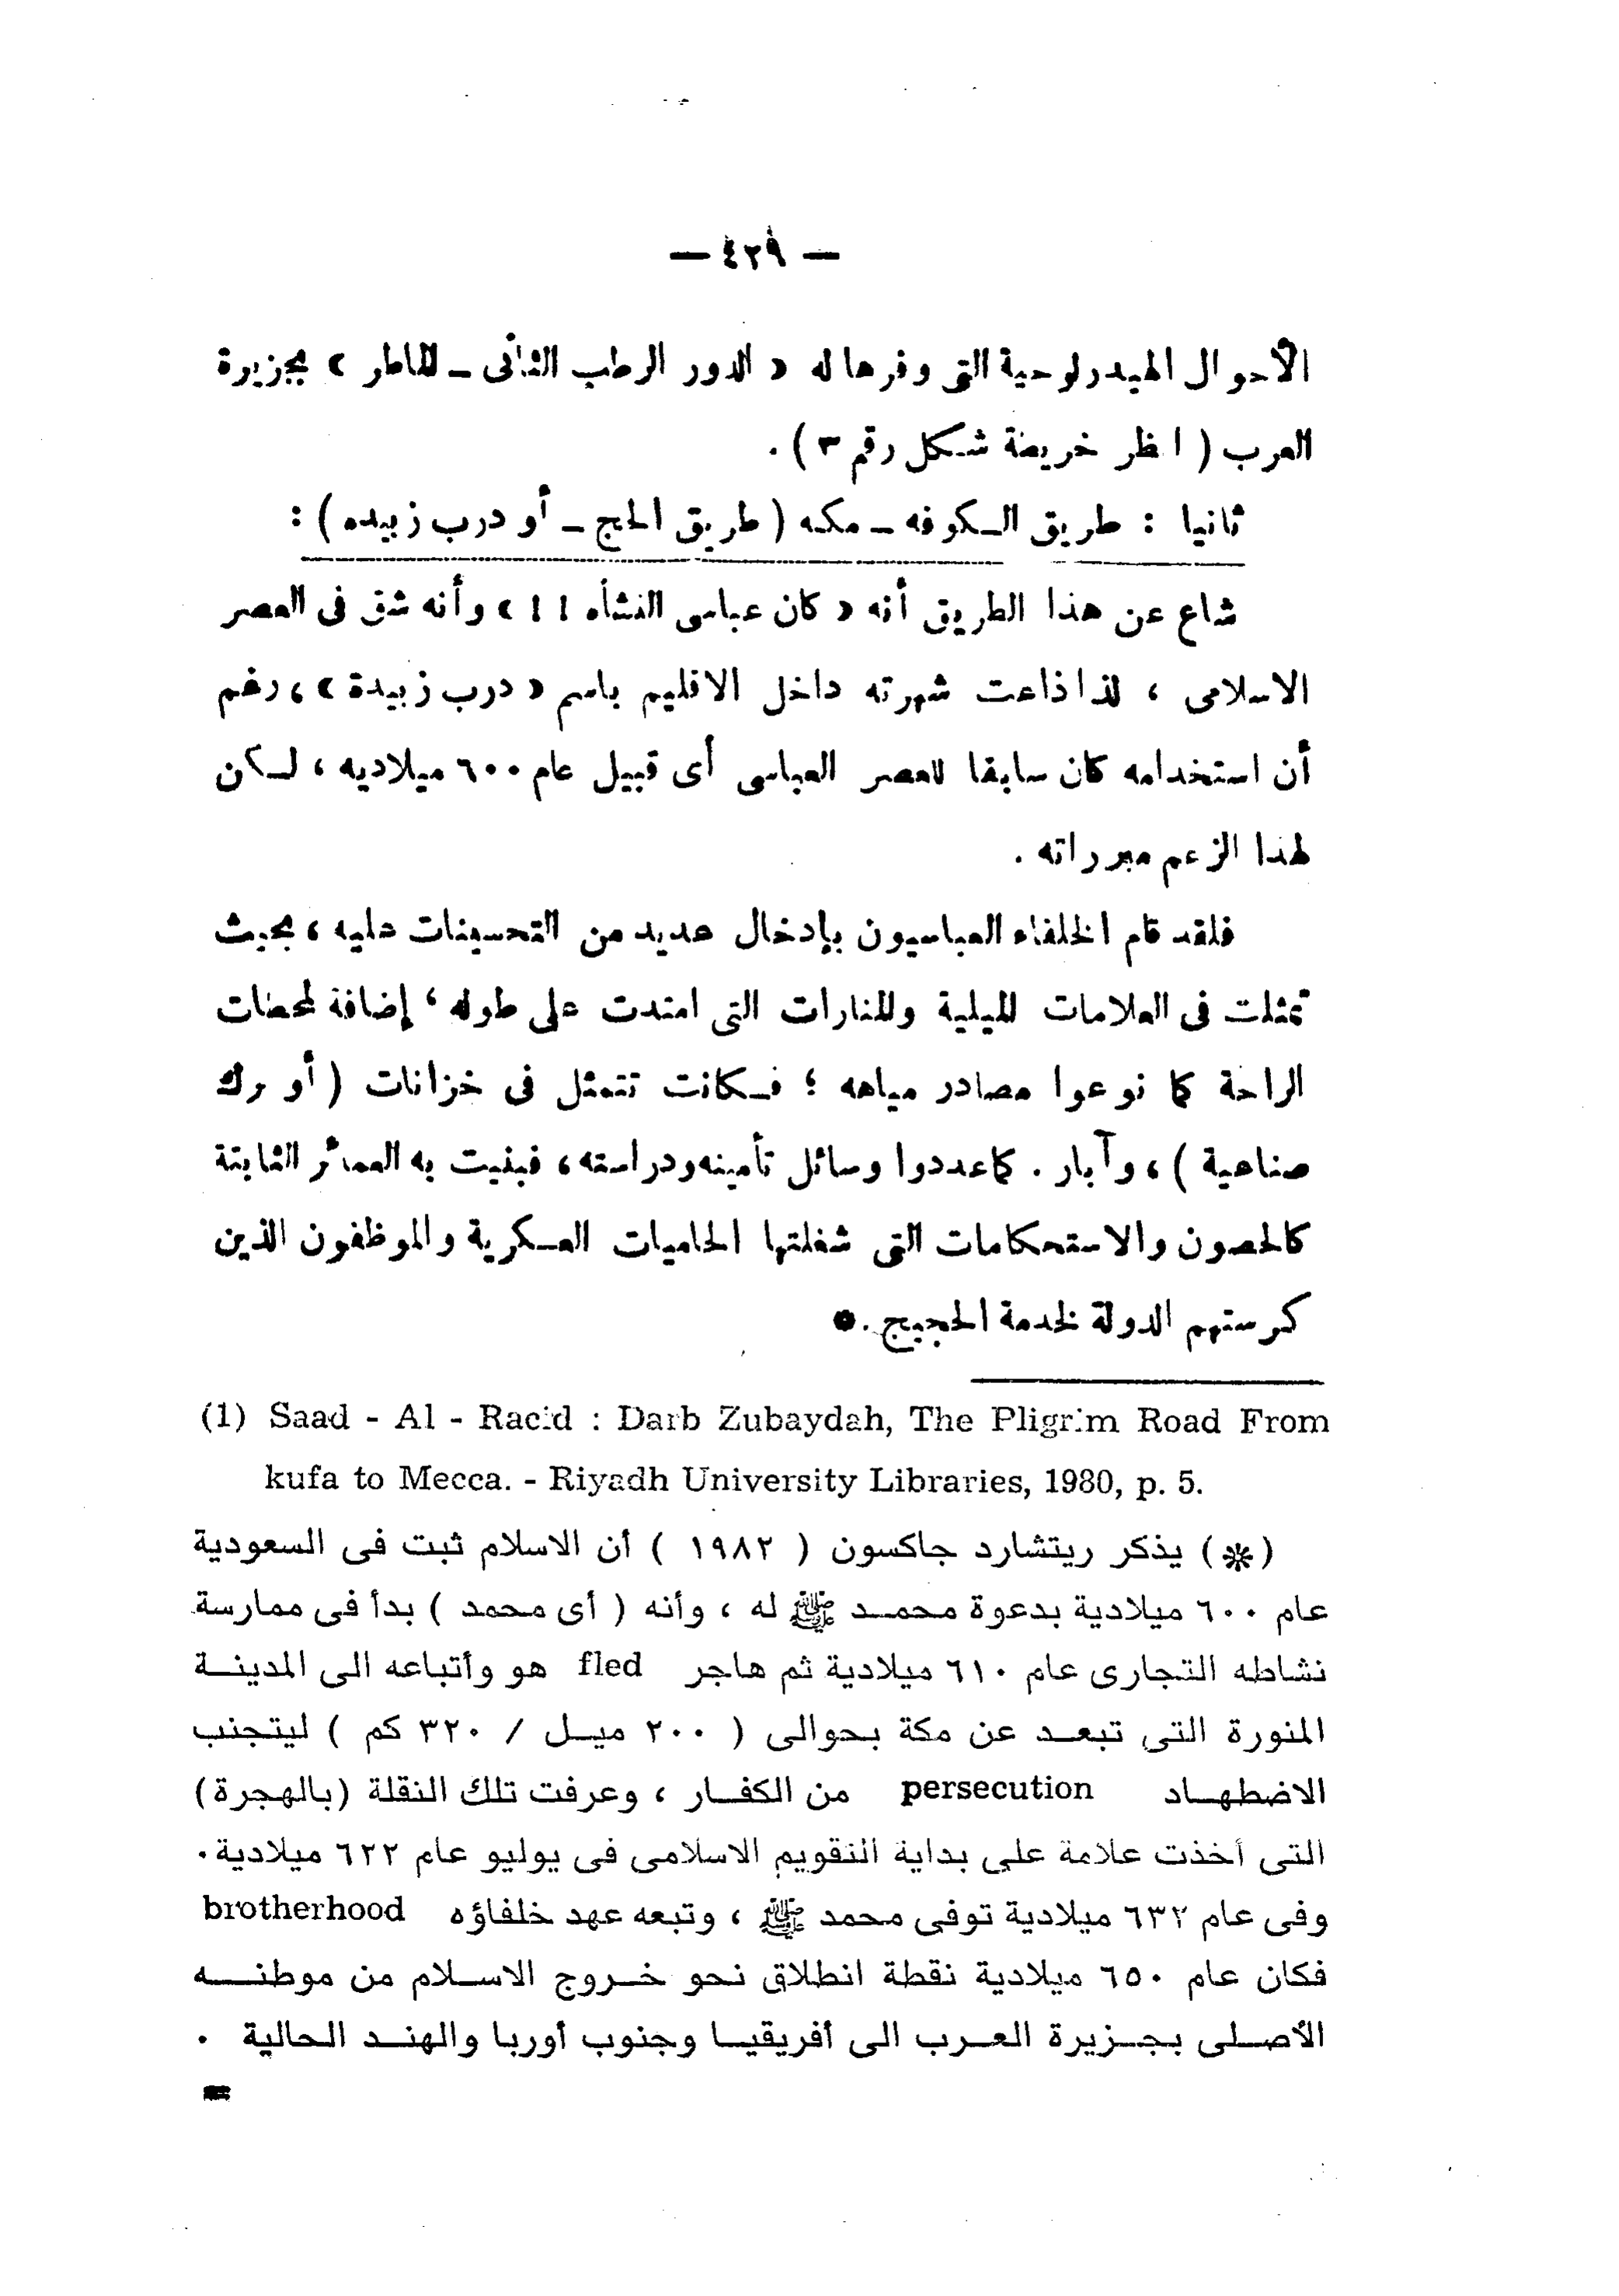 — ٤٢٩ —
الأحوال الهيدرلوجية التى وفرها له « الدور الرطب الثانى ــ الماطر » بجزيرة
العرب ( انظر خريطة شكل رقم ٣ ) .
ثانيا : طريق الكوفه ــ مكه ( طريق الحج ــ أو درب زبيده ) :
شاع عن هذا الطريق أنه « كان عباسى النشأه ! ! » وأنه شق فى العصر
الاسلامى ، لذا ذاعت شهرته داخل الاقليم باسم « درب زبيدة » ، رغم
أن استخدامه كان سابقا للعصر العباسى أى قبيل عام ٦٠٠ ميلاديه ، لكن
لهذا الزعم مبرراته .
فلقد قام الخلفاء العباسيون بإدخال عديد من التحسينات عليه ، بحيث
تمثلت فى العلامات الميلية والمنارات التى امتدت على طوله ، إضافة لمحطات
الراحة كما نوعوا مصادر مياهه ؛ فكانت تتمثل فى خزانات ( أو برك
صناعية ) ، وآبار . كما عددوا وسائل تأمينه ودراسته ، فبنيت به العمائر الثابتة
كالحصون والاستحكامات التى شغلتها الحاميات العسكرية والموظفون الذين
كرستهم الدولة لخدمة الحجيج . *
(1) Saad - Al - Racid : Darb Zubaydah, The Pligrim Road From
kufa to Mecca. - Riyadh University Libraries, 1980, p. 5.
(*) يذكر ريتشارد جاكسون ( ١٩٨٢ ) أن الاسلام ثبت فى السعودية
عام ٦٠٠ ميلادية بدعوة محمد ﷺ له ، وأنه ( أى محمد ) بدأ فى ممارسة
نشاطه التجارى عام ٦١٠ ميلادية ثم هاجر fled هو وأتباعه الى المدينة
المنورة التى تبعد عن مكة بحوالى ( ٢٠٠ ميل / ٣٢٠ كم ) ليتجنب
الاضطهاد persecution من الكفار ، وعرفت تلك النقلة (بالهجرة)
التى أخذت علامة على بداية التقويم الاسلامى فى يوليو عام ٦٢٢ ميلادية .
وفى عام ٦٣٢ ميلادية توفى محمد ﷺ ، وتبعه عهد خلفاؤه brotherhood
فكان عام ٦٥٠ ميلادية نقطة انطلاق نحو خروج الاسلام من موطنه
الأصلى بجزيرة العرب الى أفريقيا وجنوب أوربا والهند الحالية .
=